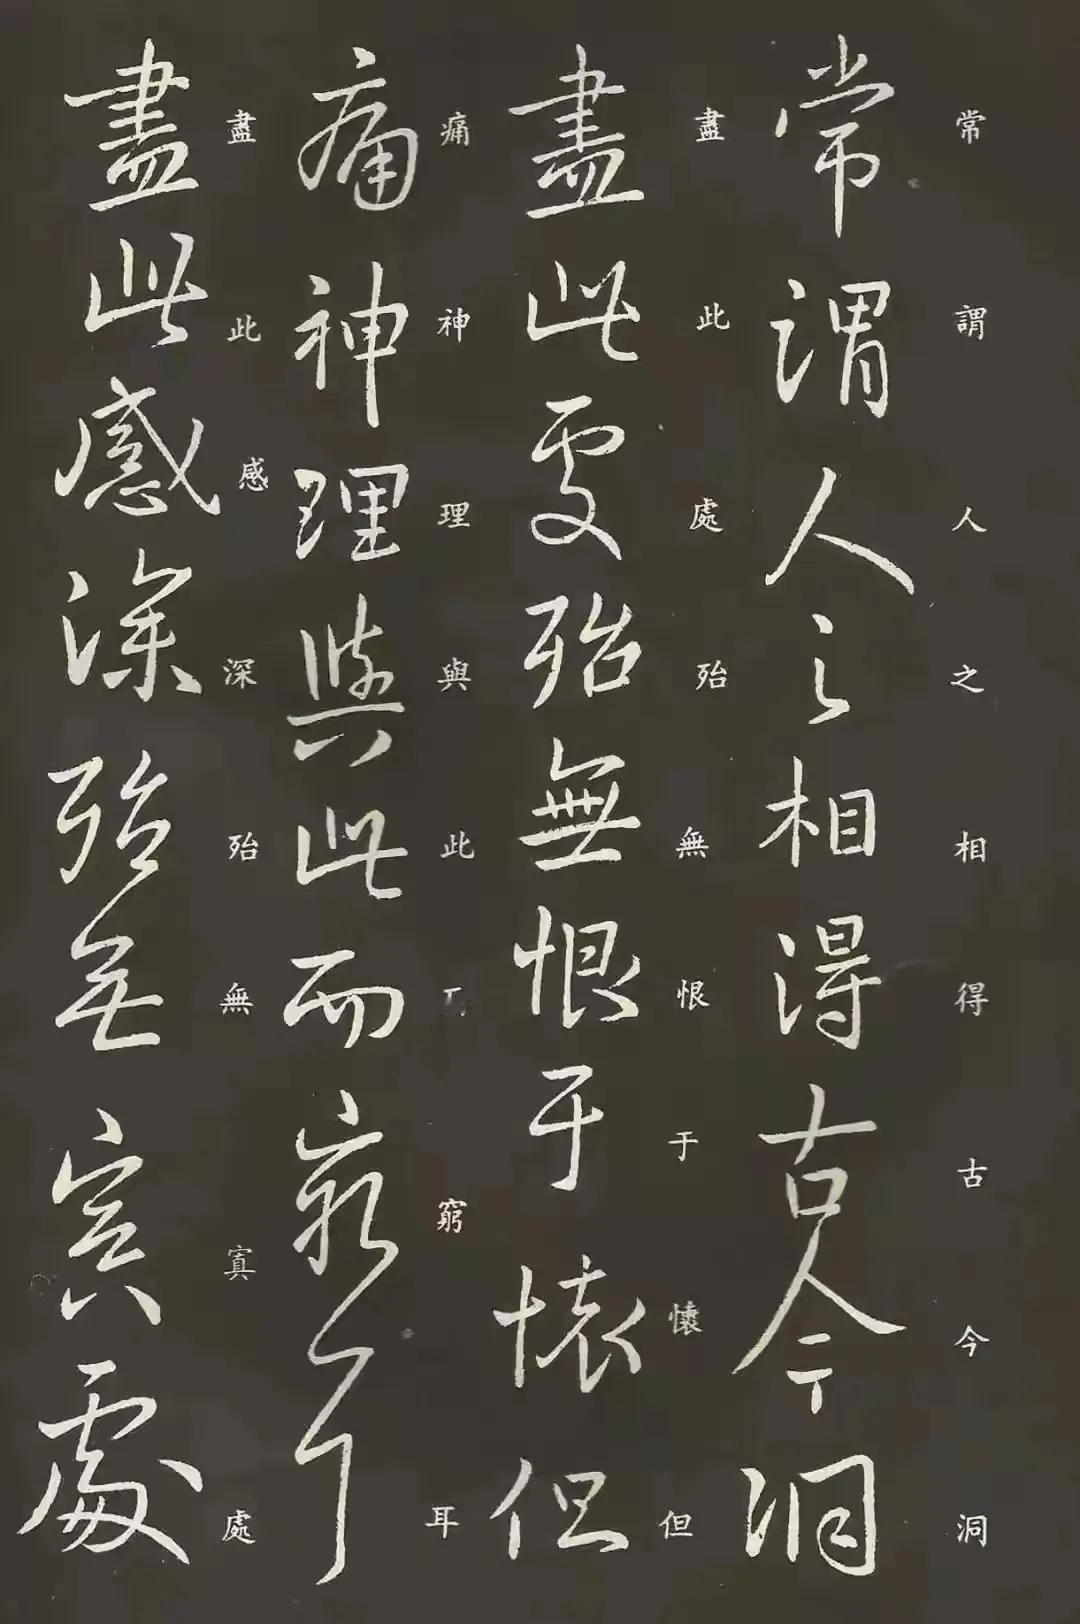 常謂人之相得古今洞
常謂人之相得古今洞
盡此處殆無恨于懷但
盡此處殆無恨于懷但
痛神理與此而窮耳
痛神理與此窮耳
盡此感深殆無冥處
盡此感深殆無寘處